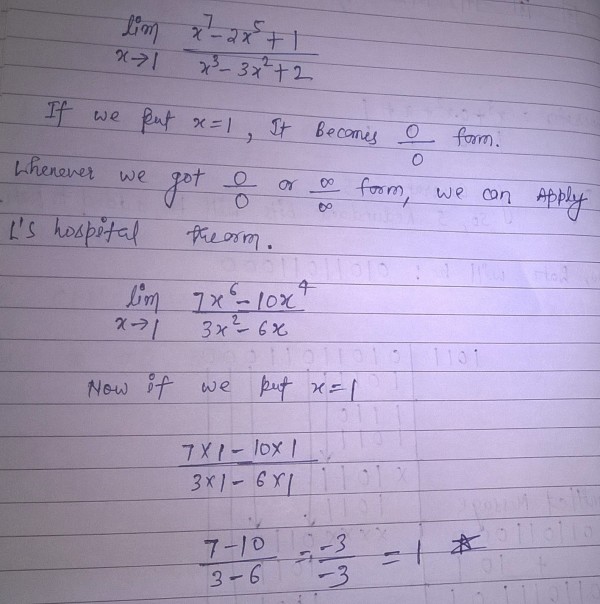 lim x→1 (x^7 - 2x^5 + 1) / (x^3 - 3x^2 + 2)
If we put x=1, It Becomes 0/0 form.
Whenever we got 0/0 or ∞/∞ form, we can Apply
L's hospital theorm.
lim x→1 (7x^6 - 10x^4) / (3x^2 - 6x)
Now if we put x=1
(7×1 - 10×1) / (3×1 - 6×1)
(7-10) / (3-6) = -3 / -3 = 1